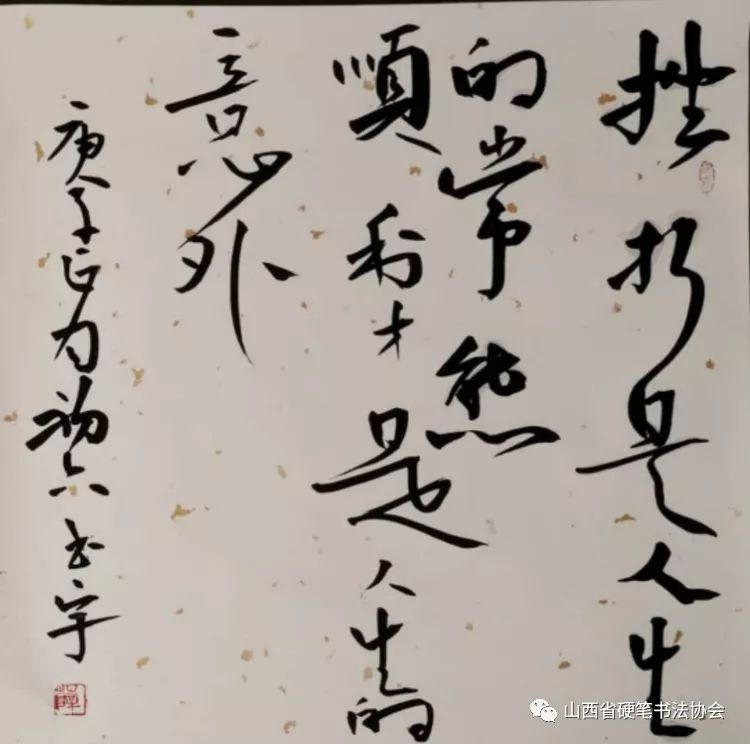 挫折是人生
的常態
順利才是人生的
意外
庚子正月初六 宇
山西省硬笔书法协会